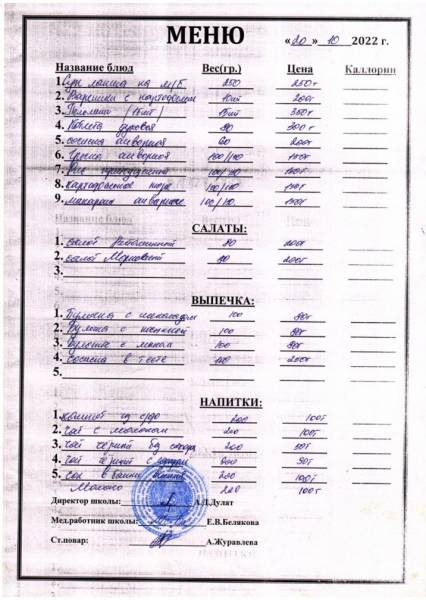 МЕНЮ «20» 10 2022 г.
Название блюд Вес(гр.) Цена Каллории
1. Суп лапша на м/б 250 250т
2. Вареники с картофелем 10шт 200т
3. Пельмени (15шт) 15шт 350т
4. Котлета 80 300т
5. сосиска отварная 60 200т
6. Гречка отварная 100/110
7. Рис 100/110
8. картофельное пюре 100/110
9. макароны отварные 100/110
САЛАТЫ:
1. салат 80 200т
2. салат Морковный 80 200т
3.
ВЫПЕЧКА:
1. Булочка с шоколадом 100 80т
2. Булочка с 100 80т
3. Булочка с маком 100 80т
4. сосиска в тесте 200т
5.
НАПИТКИ:
1. компот из 200 100т
2. чай с молоком 200 100т
3. чай чёрный без сахара 200 50т
4. чай чёрный с сахаром 200
5. Сок в 200 100т
Молоко 200 100т
Директор школы: А.Д.Дулат
Мед.работник школы: Е.В.Белякова
Ст.повар: А.Журавлева